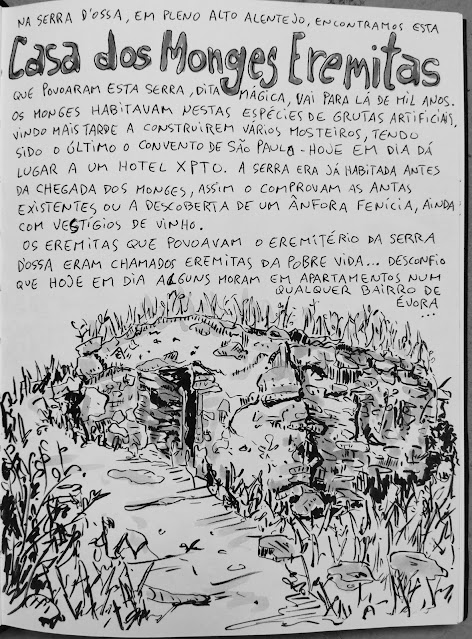 NA SERRA D'OSSA, EM PLENO ALTO ALENTEJO, ENCONTRAMOS ESTA
Casa dos Monges Eremitas
QUE POVOARAM ESTA SERRA, DITA MÁGICA, VAI PARA LÁ DE MIL ANOS.
OS MONGES HABITAVAM NESTAS ESPÉCIES DE GRUTAS ARTIFICIAIS,
VINDO MAIS TARDE A CONSTRUIREM VÁRIOS MOSTEIROS, TENDO
SIDO O ÚLTIMO O CONVENTO DE SÃO PAULO - HOJE EM DIA DÁ
LUGAR A UM HOTEL XPTO. A SERRA ERA JÁ HABITADA ANTES
DA CHEGADA DOS MONGES, ASSIM O COMPROVAM AS ANTAS
EXISTENTES OU A DESCOBERTA DE UM ÂNFORA FENÍCIA, AINDA
COM VESTÍGIOS DE VINHO.
OS EREMITAS QUE POVOAVAM O EREMITÉRIO DA SERRA
D'OSSA ERAM CHAMADOS EREMITAS DA POBRE VIDA... DESCONFIO
QUE HOJE EM DIA ALGUNS MORAM EM APARTAMENTOS NUM
QUALQUER BAIRRO DE
ÉVORA
...